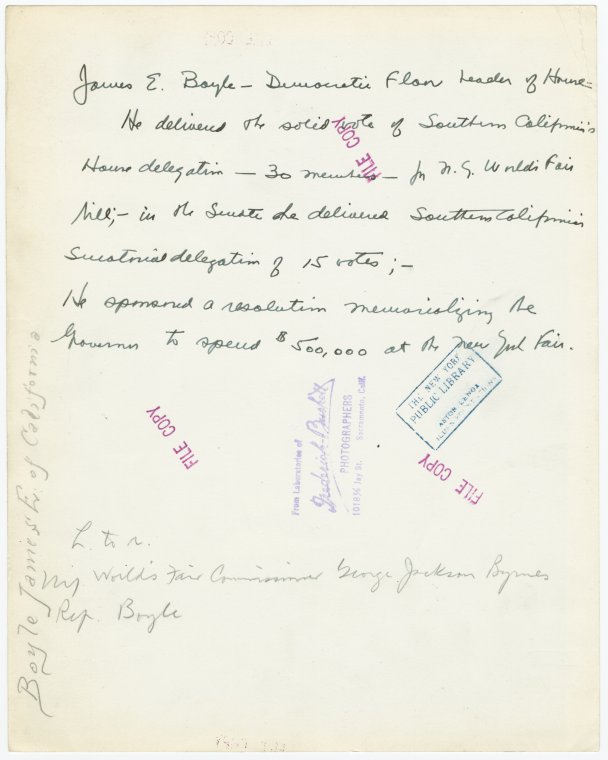 James E. Boyle — Democratic Floor Leader of House —
He delivered the solid vote of Southern California's
House delegation — 30 members — for N.Y. World's Fair
bill; — in the Senate he delivered Southern California's
Senatorial delegation of 15 votes; —
He sponsored a resolution memorializing the
Governor to spend $500,000 at the New York Fair.
FILE COPY
FILE COPY
FILE COPY
THE NEW YORK
PUBLIC LIBRARY
ASTOR, LENOX
From Laboratories of
Frederick
PHOTOGRAPHERS
1018½ Jay St. Sacramento, Calif.
L. to r.
NY World's Fair Commissioner George Jackson Byrnes
Rep. Boyle
Boyle James E. of California